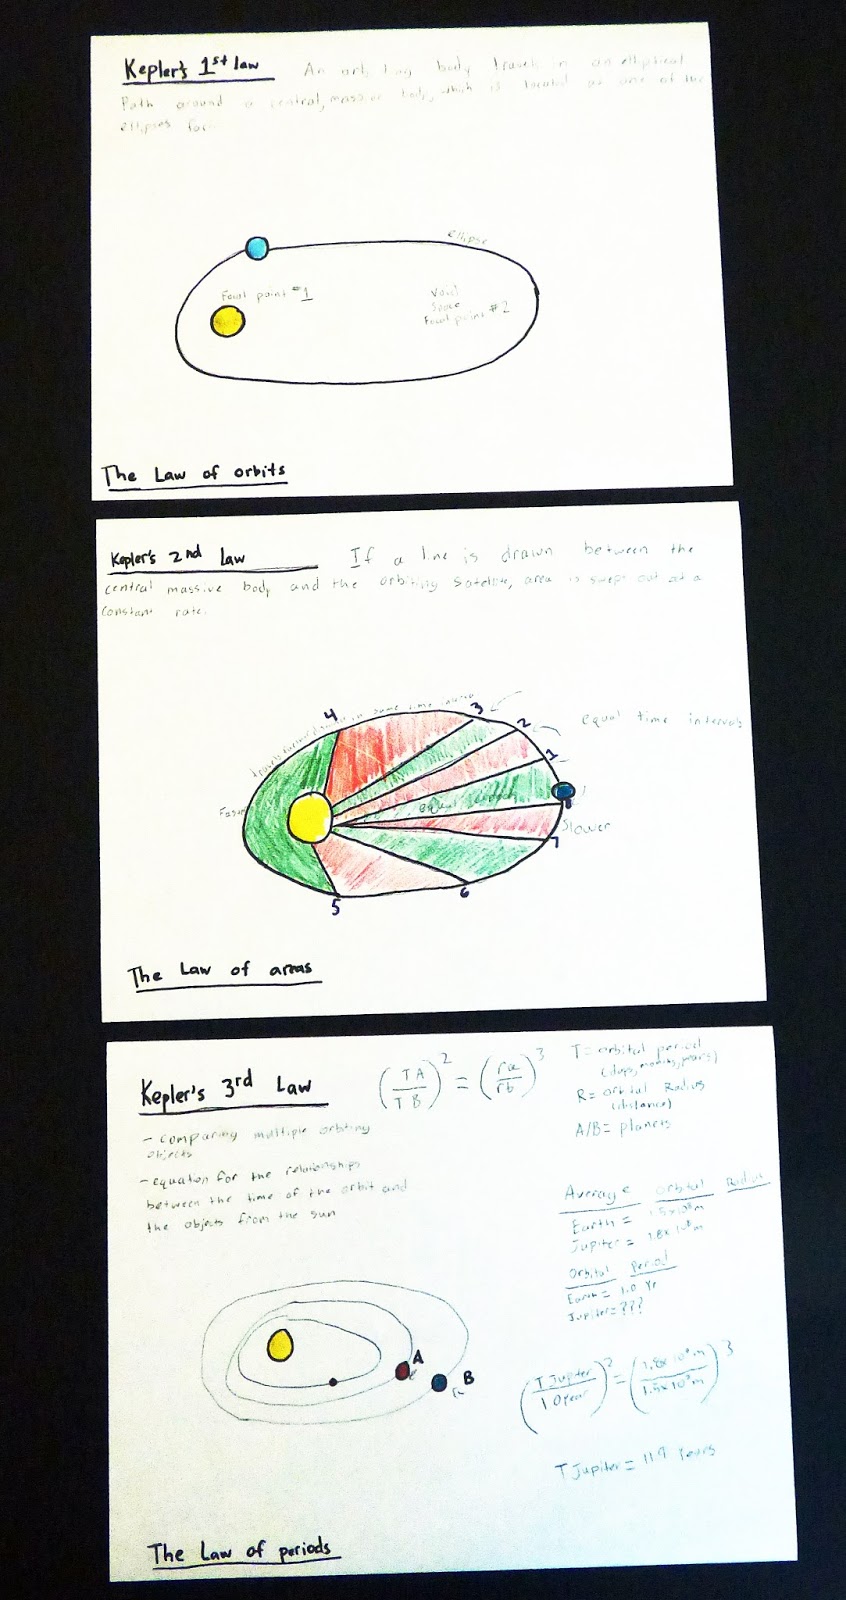 Kepler's 1st law An orbiting body travels in an elliptical
Path around a central, massive body, which is located at one of the
ellipses foci
ellipse
Focal point #1
Void
Space
Focal point #2
The Law of orbits
Kepler's 2nd Law If a line is drawn between the
central massive body and the orbiting satellite, area is swept out at a
constant rate.
4
3
2
1
equal time intervals
in same time
Faster
equal
8
Slower
7
6
5
The Law of areas
Kepler's 3rd Law
(TA/TB)² = (ra/rb)³
T = orbital period
(days, months, years)
R = orbital Radius
(distance)
A/B = planets
- comparing multiple orbiting
objects
- equation for the relationships
between the time of the orbit and
the objects from the sun
Average orbital Radius
Earth =
Jupiter =
Orbital Period
Earth = 1.0 Yr
Jupiter = ???
A
B
(T Jupiter/1.0 year)² = ( )³
T Jupiter = 11.9 Years
The Law of periods